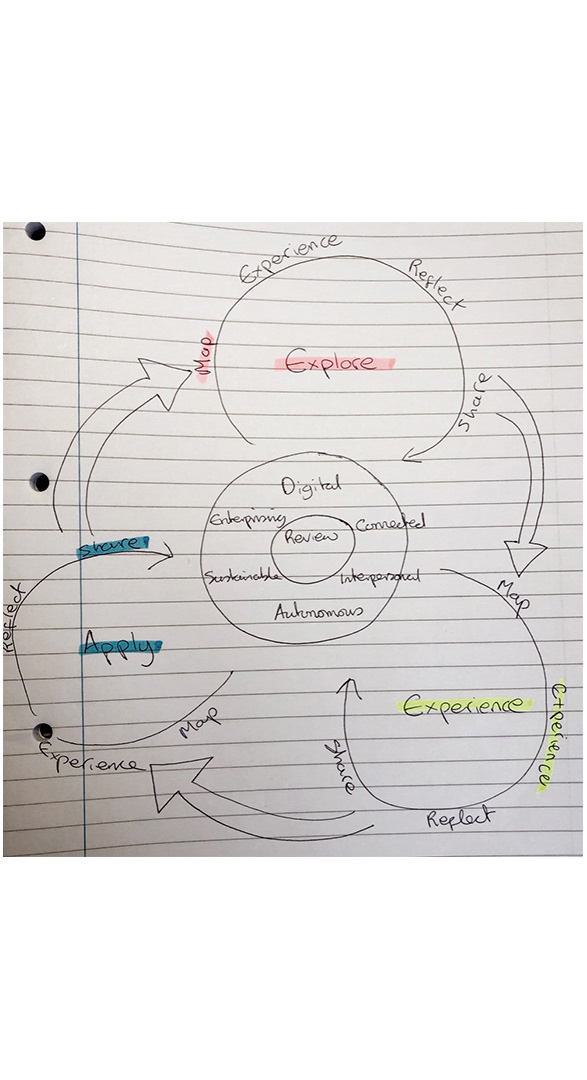 Experience
Reflect
Map
Explore
Share
Digital
Enterprising
Connected
Review
Sustainable
Interpersonal
Autonomous
Share
Reflect
Apply
Map
Experience
Map
Experience
Experience
Share
Reflect